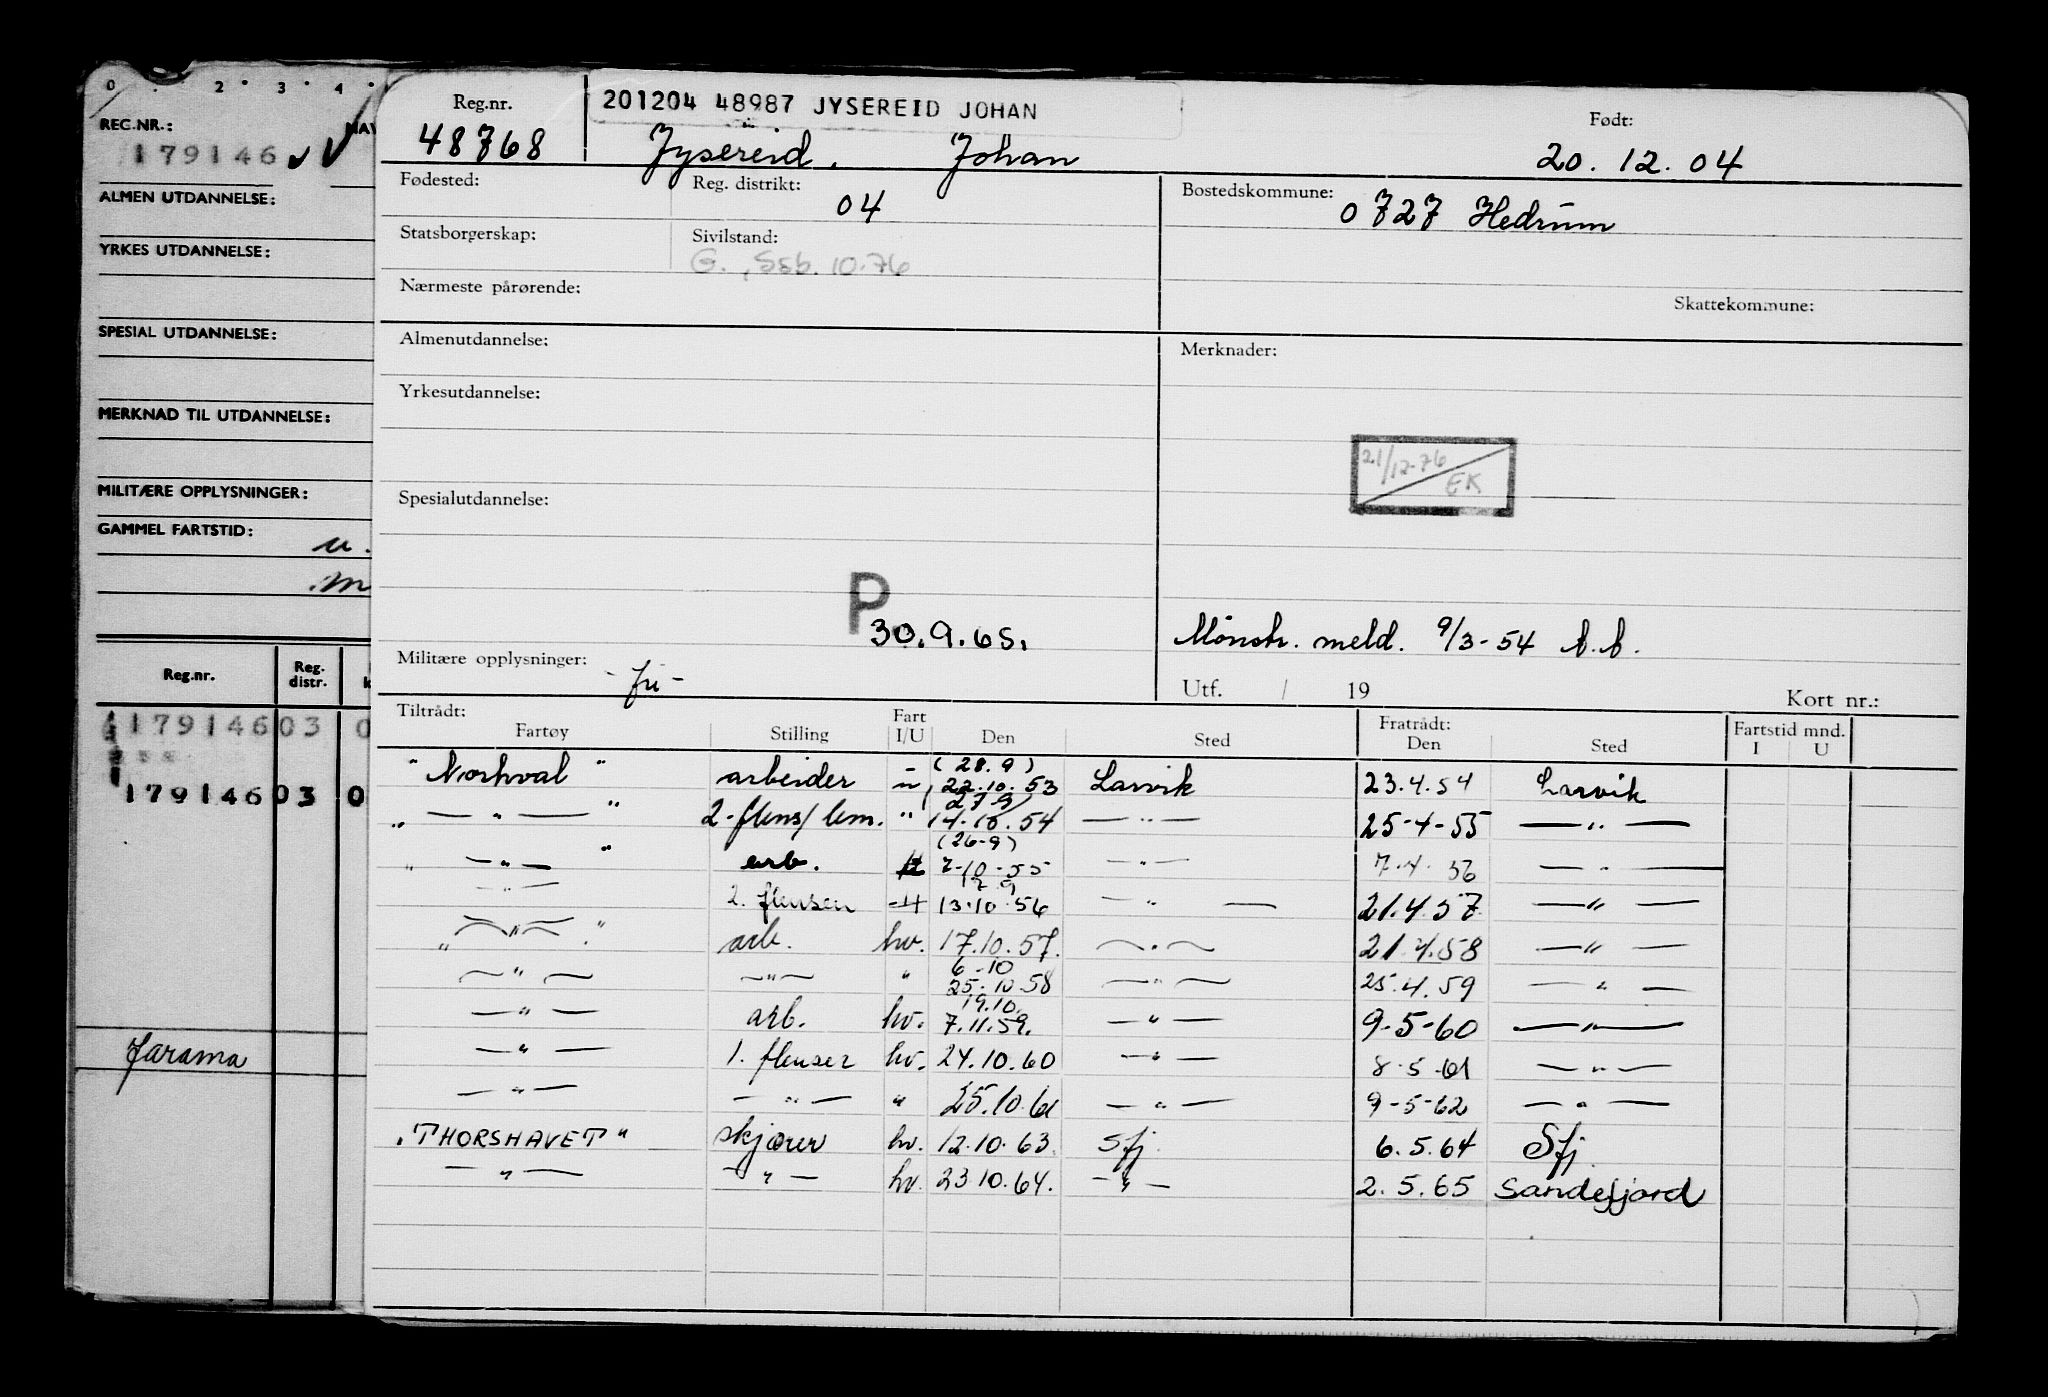 0 . 2 . 3 . 4 .
REG.NR.: NAV
179146
ALMEN UTDANNELSE:
YRKES UTDANNELSE:
SPESIAL UTDANNELSE:
MERKNAD TIL UTDANNELSE:
MILITÆRE OPPLYSNINGER:
GAMMEL FARTSTID:
u.
m
Reg.nr. Reg. distr. k
179146 03 0
179146 03 0
Jarama
Reg.nr. 201204 48987 JYSEREID JOHAN Født:
48768 Jysereid. Johan 20.12.04
Fødested: Reg. distrikt: 04 Bostedskommune: 0727 Hedrum
Statsborgerskap: Sivilstand:
G., Ssb. 10.76
Nærmeste pårørende: Skattekommune:
Almenutdannelse: Merknader:
Yrkesutdannelse:
21/12-76
EK
Spesialutdannelse:
P
30.9.65. Mønstr. meld. 9/3-54
Militære opplysninger: - fri - Utf. / 19 Kort nr.:
Tiltrådt: Fart Fratrådt: Fartstid mnd.
Fartøy Stilling I/U Den Sted Den Sted I U
(28.9)
"Norhval" arbeider 22.10.53 Larvik 23.4.54 Larvik
(27.9)
" — " — " 2-flens/lem. " 14.10.54 — " — 25-4-55 — " —
(26-9)
" — " — " arb. 7-10-55 — " — 7.4.56 — " —
17.9
— " — 2. flenser 13.10.56 — " — 21.4.57 — " —
" — " — " arb. hv. 17.10.57. — " — 21.4.58 — " —
6-10
— " — — " — " 25.10.58 — " — 25.4.59 — " —
19.10.
— " — arb. hv. 7.11.59. — " — 9-5-60 — " —
— " — 1. flenser hv. 24.10.60 — " — 8-5-61 — " —
— " — — " — " 25.10.61 — " — 9-5-62 — " —
"THORSHAVET" skjærer hv. 12.10.63. Sfj. 6.5.64 Sfj
— " — — " — hv. 23.10.64. — " — 2.5.65 Sandefjord